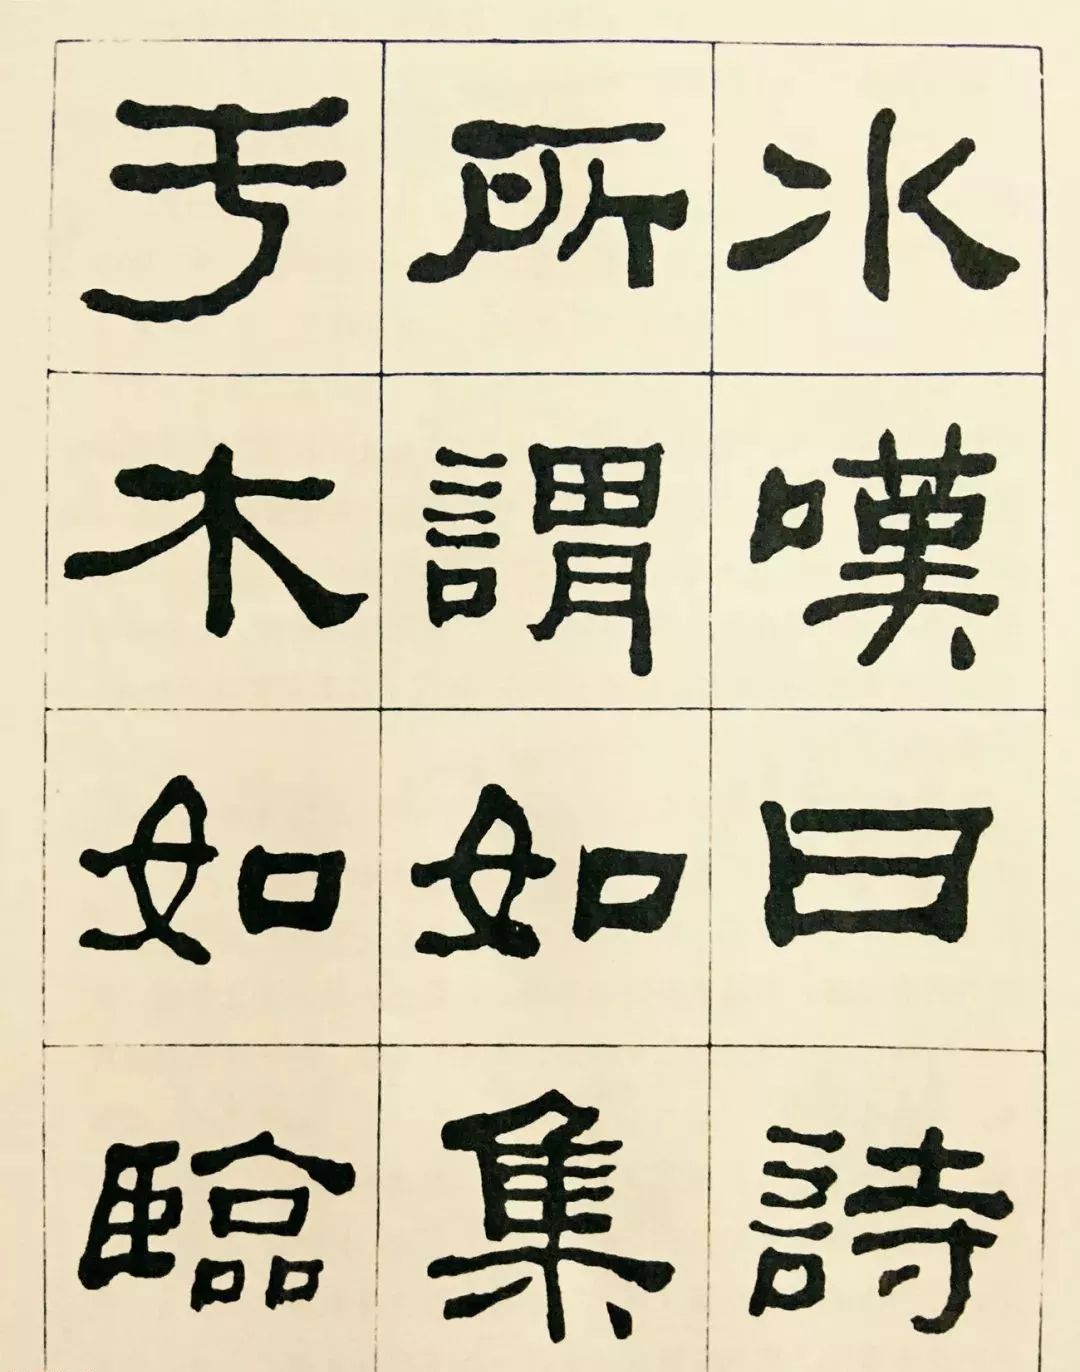 水嘆曰詩
所謂如集
于木如臨